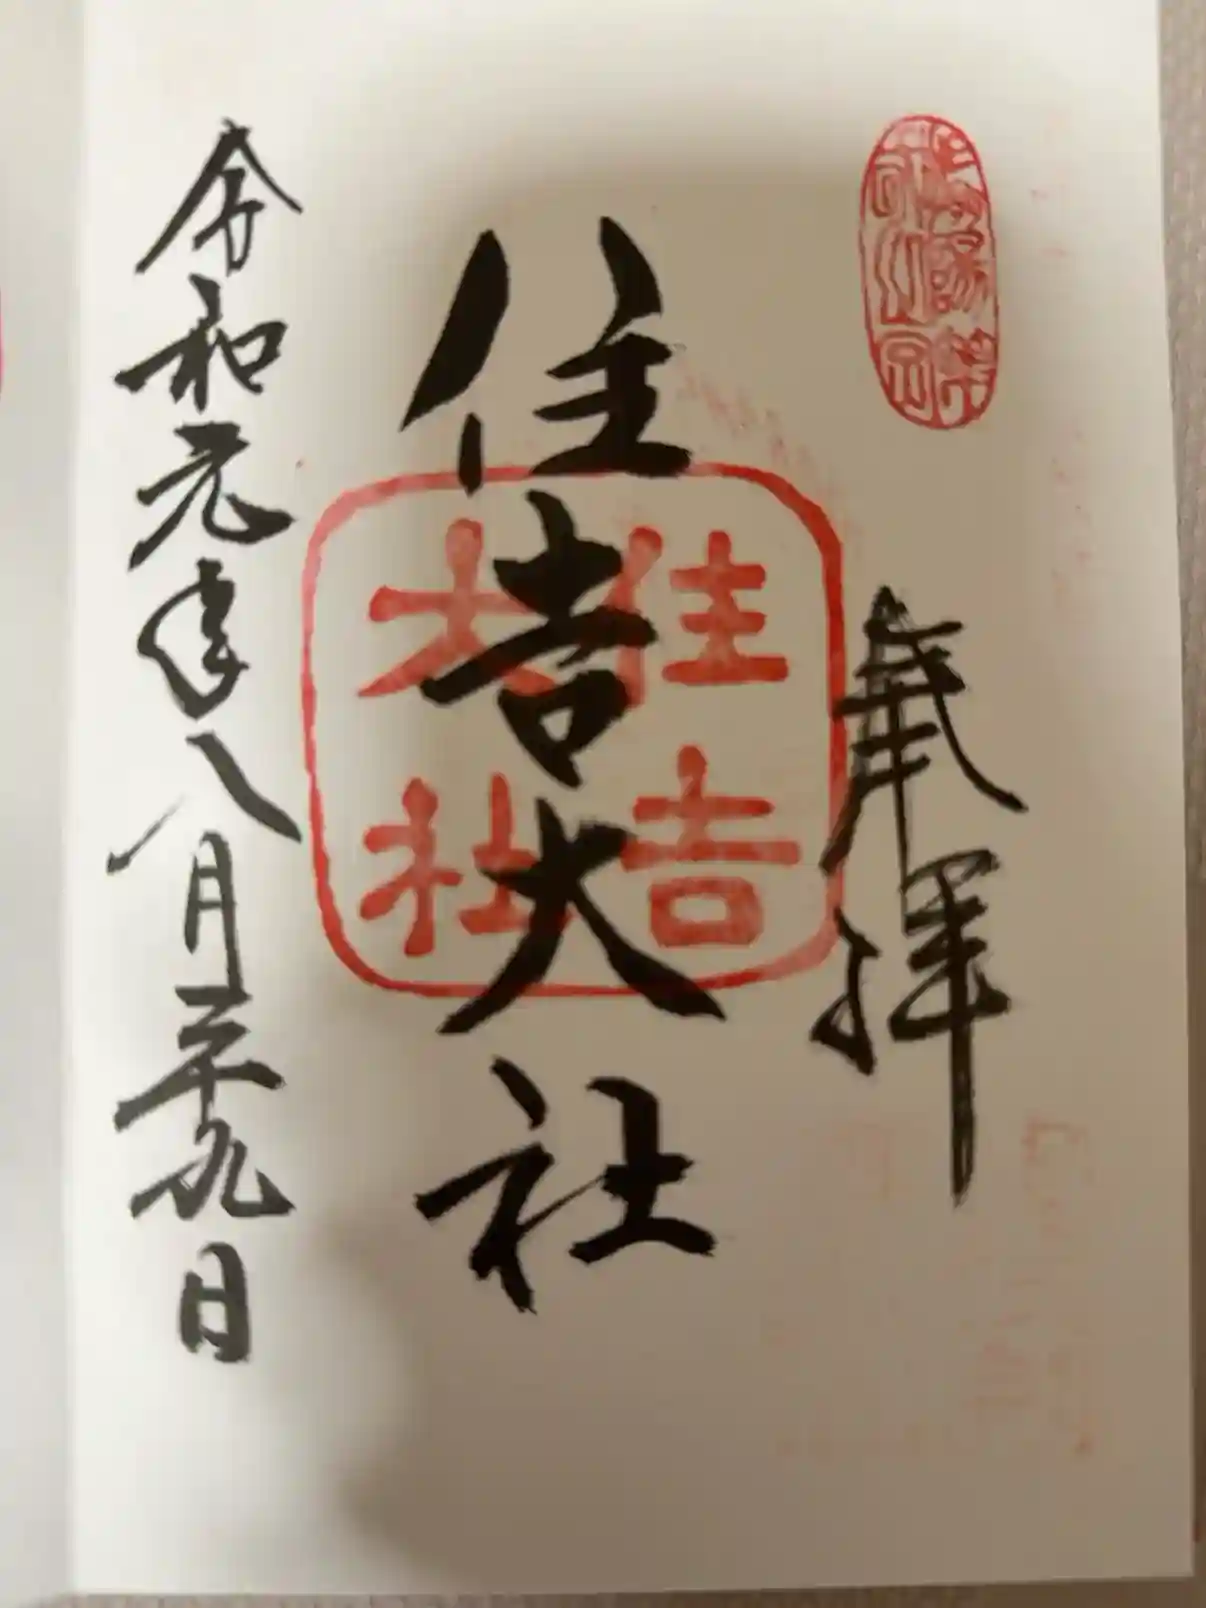 奉拝
住吉大社
住吉
大社
令和元年八月二十九日